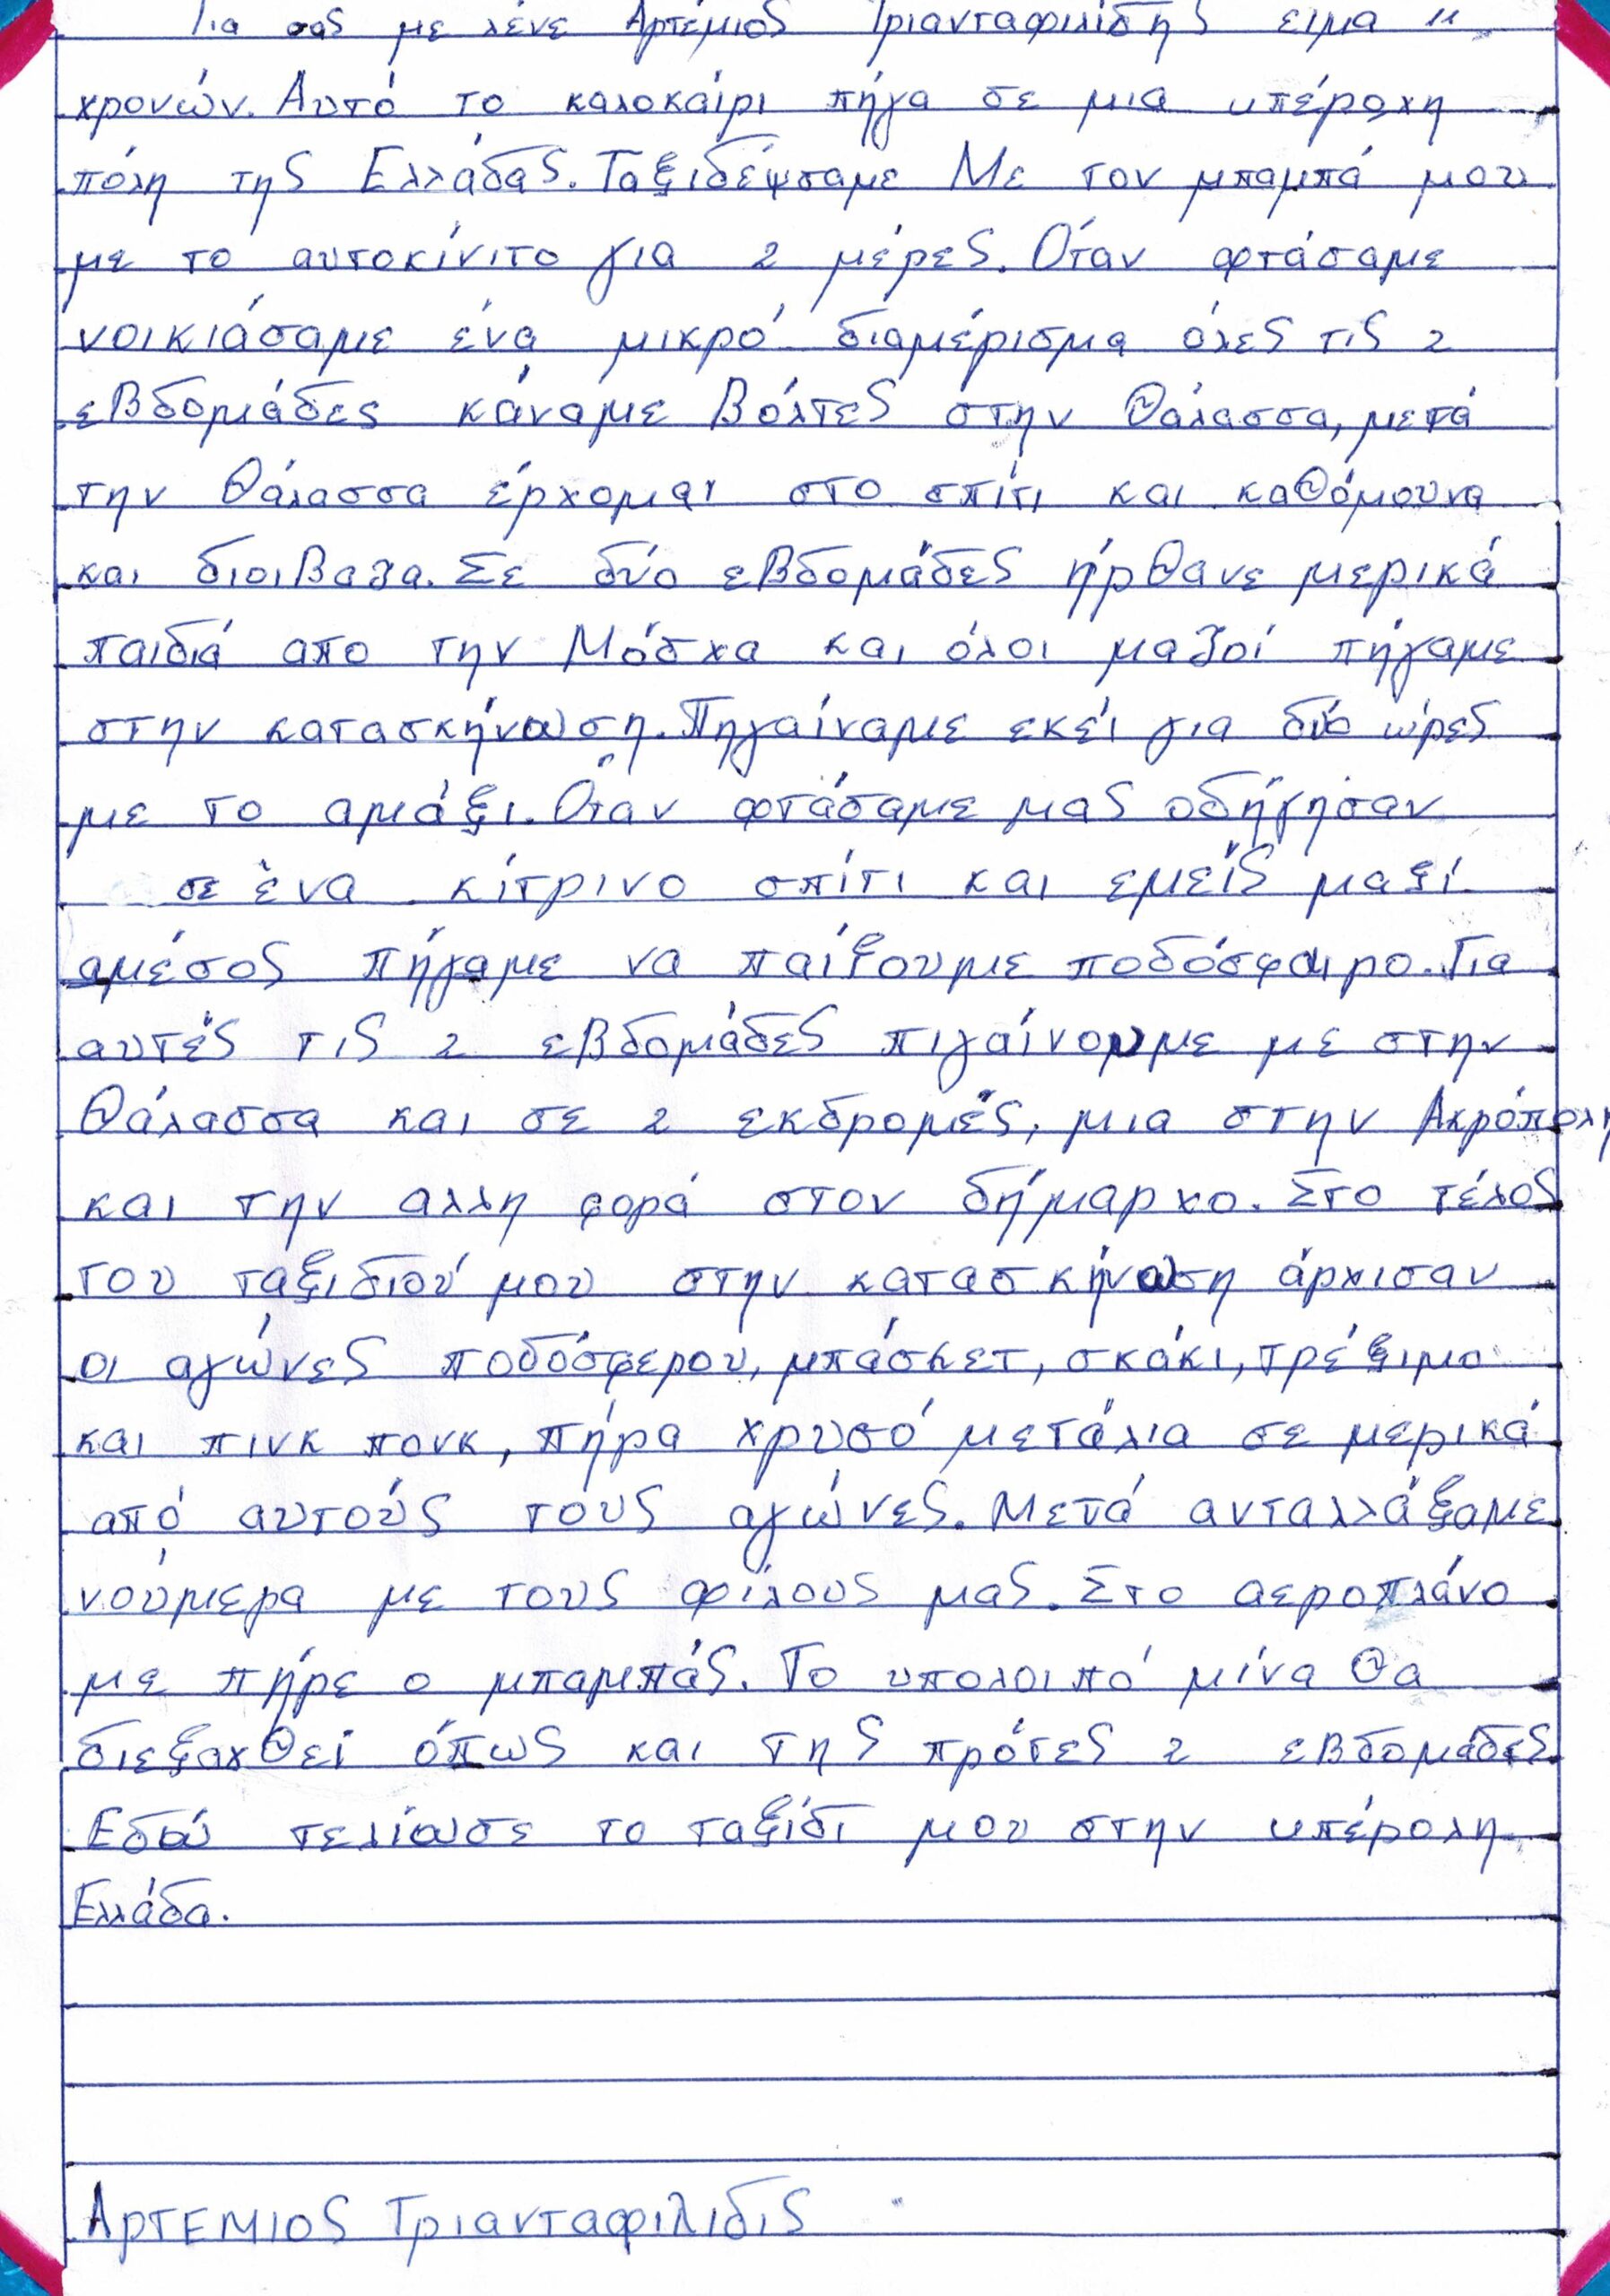 Για σας με λένε Αρτέμιος Τριανταφιλίδης ειμα 11
χρονών. Αυτό το καλοκαίρι πήγα σε μια υπέροχη
πόλη της Ελλάδας. Ταξιδέψσαμε Με τον μπαμπά μου
με το αυτοκίνιτο για 2 μέρες. Όταν φτάσαμε
νοικιάσαμε ένα μικρό διαμέρισμα όλες τις 2
εβδομάδες κάναμε βόλτες στην θάλασσα, μετά
την θάλασσα έρχομαι στο σπίτι και καθόμουνα
και διοιβαζα. Σε δύο εβδομάδες ήρθανε μερικά
παιδιά απο την Μόσχα και όλοι μαζοί πήγαμε
στην κατασκήνωση. Πηγαίναμε εκεί για δύο ώρες
με το αμάξι. Όταν φτάσαμε μας οδήγησαν
σε ένα κίτρινο σπίτι και εμείς μαξί
αμέσος πήγαμε να παίξουμε ποδόσφαιρο. Για
αυτές τις 2 εβδομάδες πιγαίνουμε με στην
θάλασσα και σε 2 εκδρομές, μια στην Ακρόπολη
και την αλλη φορά στον δήμαρχο. Στο τέλος
του ταξιδιού μου στην κατασκήνωση άρχισαν
οι αγώνες ποδόσφερου, μπάσκετ, σκάκι, τρέξιμο
και πινκ πονκ, πήρα χρυσό μετάλια σε μερικά
από αυτούς τους αγώνες. Μετά ανταλλάξαμε
νούμερα με τους φίλους μας. Στο αεροπλάνο
με πήρε ο μπαμπάς. Το υπολοιπό μίνα θα
διεξαχθεί όπως και της πρότες 2 εβδομάδες.
Εδώ τελίωσε το ταξίδι μου στην υπέρολη
Ελλάδα.
ΑρΤΕΜΙΟς Τριανταφιλιδις